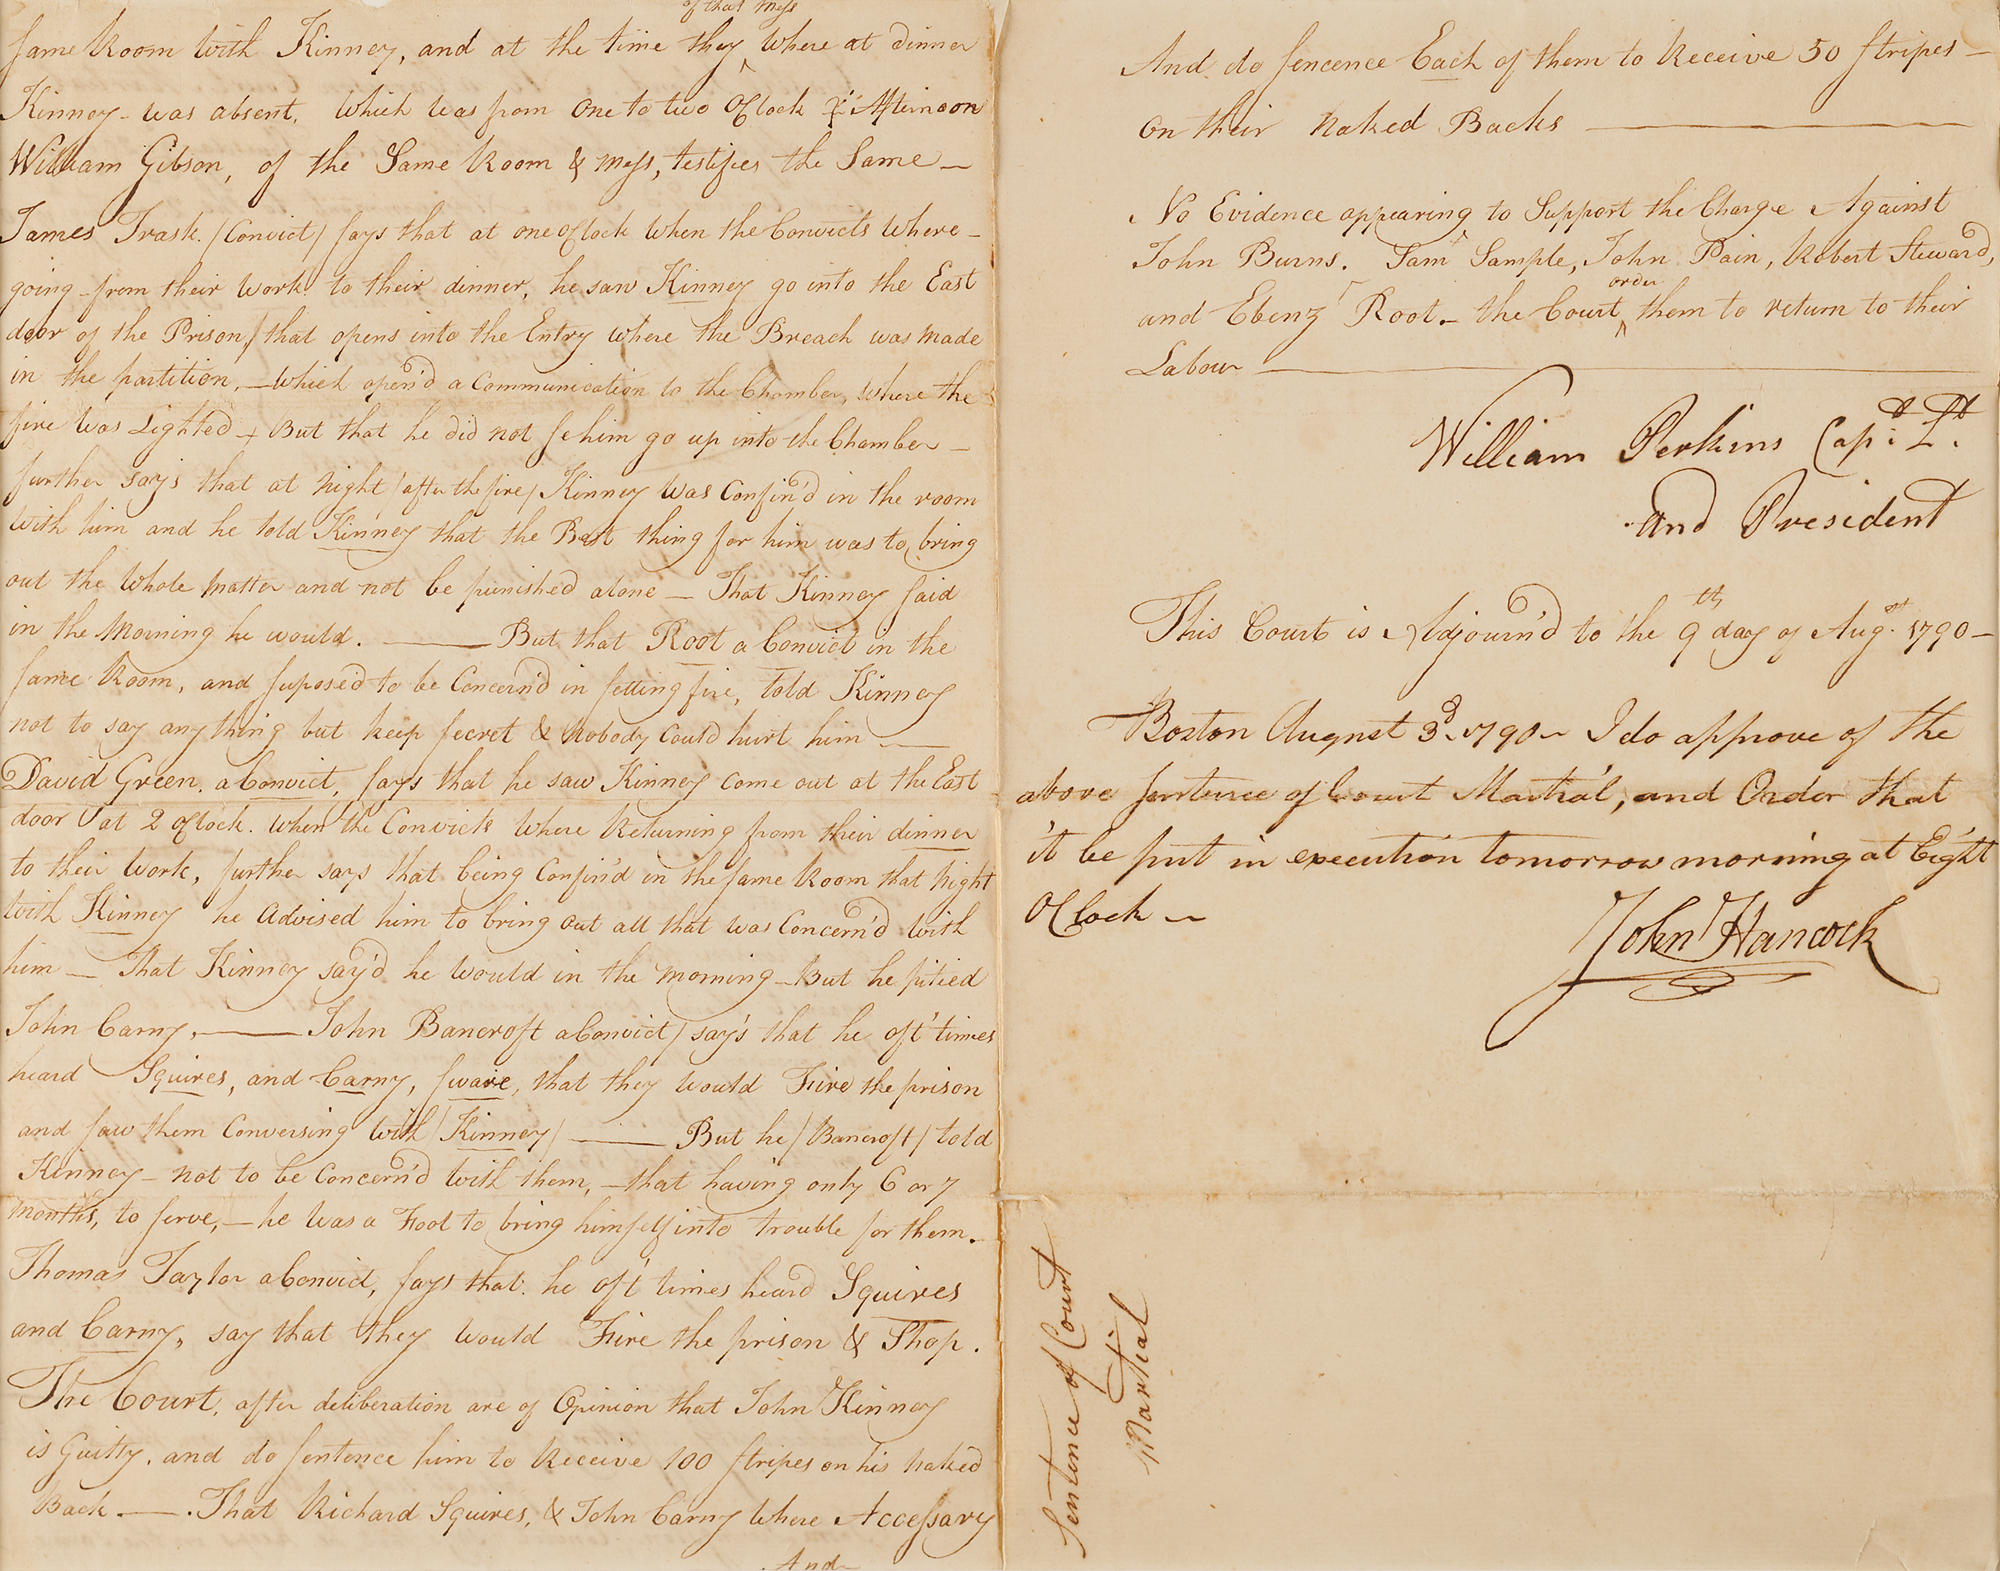 of that Mess
same Room with Kinney, and at the time they ^ where at dinner
Kinney - was absent, which was from one to two OClock Afternoon
William Gibson, of the Same Room & Mess, testifies the Same —
James Trask. /Convict/ says that at one oClock when the Convicts where -
going - from their work to their dinner, he saw Kinney go into the East
door of the Prison, / that opens into the Entry where the Breach was made
in the partition, — which open'd a Communication to the Chamber, where the
fire was Lighted - But that he did not se him go up into the Chamber —
further says that at Night / after the fire / Kinney was Confin'd in the room
with him and he told Kinney that the Best thing for him was to bring
out the whole matter and not be punished alone — That Kinney said
in the Morning he would. —— But that Root a Convict in the
same Room, and suposed to be Concern'd in setting fire, told Kinney
not to say any thing but keep secret & Nobody Could hurt him —
David Green. a Convict, says that he saw Kinney come out at the East
door at 2 oClock. when the Convicts where Returning from their dinner
to their work, further says that being Confin'd in the same Room that Night
with Kinney he Advised him to bring out all that was Concern'd with
him — That Kinney say'd he would in the morning — But he pitied
John Carny. —— John Bancroft a Convict / say's that he oft' times
heard Squires, and Carny, sware, that they would Fire the prison
and saw them Conversing with / Kinney / —— But he / Bancroft / told
Kinney - not to be Concern'd with them, - that having only 6 or 7
Months, to serve, - he was a Fool to bring himself into trouble for them.
Thomas Taylor a Convict, says that he oft' times heard Squires
and Carny, say that they would Fire the prison & Shop.
The Court, after deliberation are of Opinion that John Kinney
is Guilty, and do sentence him to Receive 100 stripes on his Naked
Back. —— . That Richard Squires, & John Carny where Accessary
And
And do sencence Each of them to Receive 50 stripes —
on their Naked Backs ——
No Evidence appearing to Support the Charge Against
John Burns. Sam^l Sample, John Pain, Robert Steward,
and Ebenz^r Root. - the Court ^ order them to return to their
Labour ——
William Perkins Cap^t L^t.
and President
This Court is Adjourn'd to the 9^th day of Aug^st. 1790 —
Boston August 3^d. 1790 — I do approve of the
above sentence of Court Martial, and Order that
it be put in execution tomorrow morning at Eight
OClock —
John Hancock
Sentence of Court
Martial